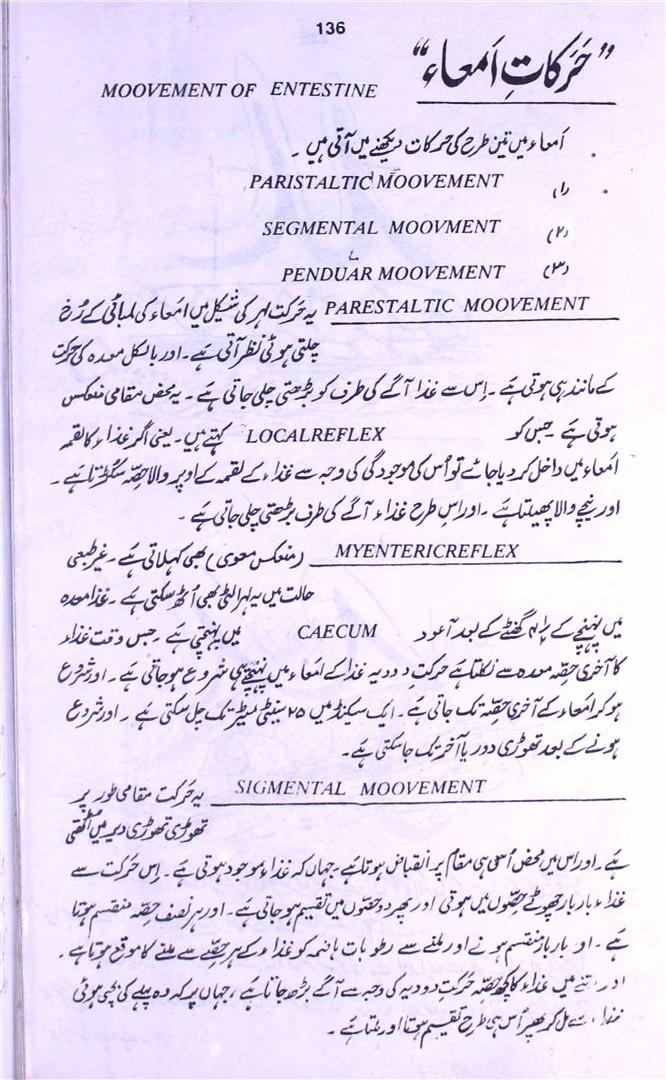 136
"حَرَکاتِ اَمعاء"
MOOVEMENT OF ENTESTINE
اَمعاء میں تین طرح کی حرکات دیکھنے میں آتی ہیں۔
(۱) PARISTALTIC MOOVEMENT
(۲) SEGMENTAL MOOVMENT
(۳) PENDUAR MOOVEMENT
PARESTALTIC MOOVEMENT یہ حَرکت لہر کی شکل میں اَمعاء کی لمبائی کے رُخ
چلتی ہوئی نظر آتی ہے۔ اور بالکل معدہ کی حرکت
کے مانند ہی ہوتی ہے۔ اِس سے غذا آگے کی طرف کو بڑھتی چلی جاتی ہے۔ یہ محض مقامی منعکس
ہوتی ہے جس کو LOCALREFLEX کہتے ہیں۔ یعنی اگر غذاء کا لقمہ
اَمعاء میں داخل کر دیا جائے تو اُس کی موجودگی کی وجہ سے غذاء کے لقمہ کے اوپر والا حِصّہ سکڑتا ہے۔
اور نیچے والا پھیلتا ہے۔ اور اس طرح غذاء آگے کی طرف بڑھتی چلی جاتی ہے۔
MYENTERICREFLEX (منعکس معوی) بھی کہلاتی ہے۔ غیر طبعی
حالت میں یہ لہر الٹی بھی اُٹھ سکتی ہے۔ غذا معدہ
میں پہنچنے کے گھنٹے کے بعد آعود CAECUM میں پہنچتی ہے۔ جس وقت غذاء
کا آخری حِصّہ معدہ سے نکلتا ہے حرکتِ دودیہ غذا کے اَمعاء میں پہنچتے ہی شروع ہو جاتی ہے۔ اور شروع
ہو کر اَمعاء کے آخری حِصّہ تک جاتی ہے۔ ایک سکنڈ میں ۲۵ سینٹی میٹر تک چل سکتی ہے۔ اور شروع
ہونے کے بعد تھوڑی دور یا آخر تک جا سکتی ہے۔
SIGMENTAL MOOVEMENT یہ حَرکت مقامی طور پر
تھوڑی تھوڑی دیر میں اُٹھتی
ہے۔ اور اس میں محض اُسی ہی مقام پر انقباض ہوتا ہے۔ جہاں کہ غذاء موجود ہوتی ہے۔ اِس حَرکت سے
غذاء بار بار چھوٹے حِصّوں میں ہوتی اور پھر دو حِصّوں میں تقسیم ہو جاتی ہے۔ اور ہر نصف حِصّہ منقسم ہوتا
ہے۔ اور بار بار منقسم ہونے اور ملنے سے رطوبات ہاضمہ کو غذاء کے ہر حِصّے سے ملنے کا موقع ہوتا ہے۔
اور اتنے میں غذاء کا کچھ حِصّہ حَرکتِ دودیہ کی وجہ سے آگے بڑھ جاتا ہے، جہاں پر کہ وہ پہلے کی بچی ہوئی
غذاء سے مل کر پھر اُس ہی طرح تقسیم ہوتا اور ملتا ہے۔